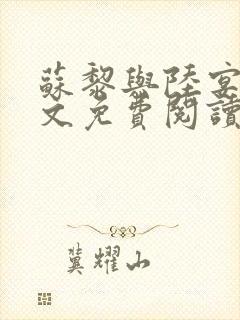 蘇黎與陸宴
文免費閱讀
冀耀山